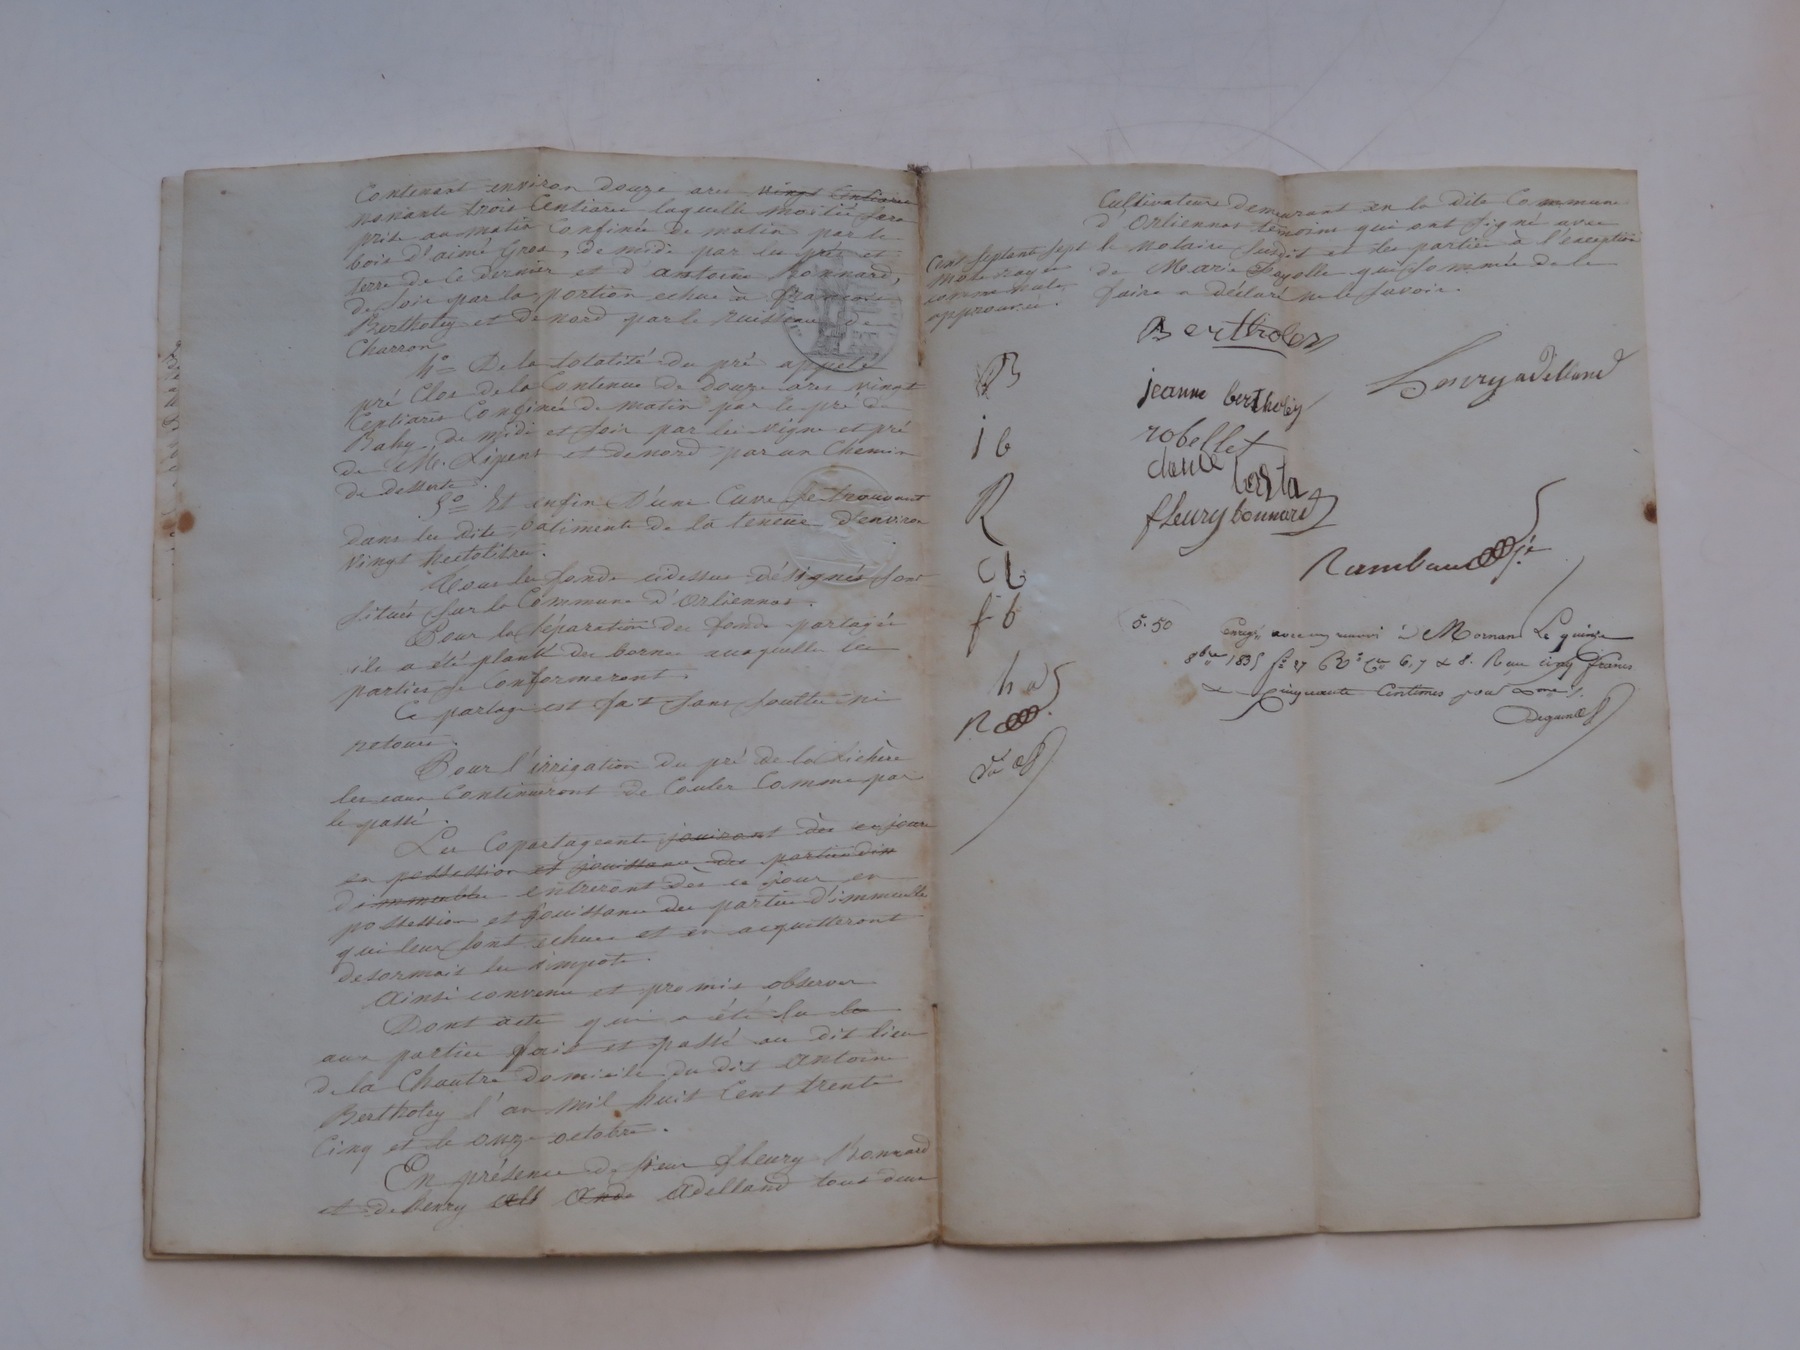 Contenant environ douze ares vingt Centiares
nonante trois Centiares laquelle moitié sera
prise au matin Confinée de matin par le
bois d'aimé Gros, de midi par les prés et
terre de ce dernier et d'antoine Bonnard,
de soir par la portion echue à françoise
Bertholey et de nord par le ruisseau de
Charron
4° De la totalité du pré appelé
pré Clos de la Contenue de douze ares vingt
Centiares Confinée de matin par le pré de
de midi et soir par les vigne et pré
de M. et de nord par un Chemin
de desserte.
5° Et enfin D'une Cuve se trouvant
dans les dits batiments de la teneue d'environ
vingt hectolitres.
Tous les fonds cidessus désignés sont
situés sur la Commune d'Orliennas.
Pour la séparation des fonds partagés
il a été planté des bornes auxquelles les
parties se Conformeront.
Ce partage est fait sans soulte ni
retours.
Pour l'irrigation du pré de la Lichère
les eaux Continueront de Couler Comme par
le passé.
Les Copartageants jouiront dès ce jour
en possession et jouissance des parties
d'immeubles entreront dès ce jour en
possession et jouissance des parties d'immeuble
qui leur sont echues et en acquitteront
desormais les impots.
Ainsi convenu et promis observer
Dont acte qui a été lu
aux parties fait et passé au dit lieu
de la Chautre domicile du dit antoine
Bertholey l'an mil huit Cent trente
Cinq et le onze octobre.
En présence de sieur fleury Bonnard
et de henry Adilland tous deux
Cultivateurs demeurant en la dite Commune
d'Orliennas témoins qui ont signé avec
le notaire susdit et les parties à l'exception
de Marie Fayolle qui sommée de le
faire a déclaré ne le savoir.
Cent septante sept
mots rayés
comme nuls,
approuvés.
Bertholey
henry adilland
B
jeanne bertholey
j b
robellet
R
fleury bonnard
f b
Rambaud
h a
R
5.50
Enregé à Mornant Le quinze
8bre 1835 f° 27 Ro Ces 6, 7 & 8. Reçu cinq francs
& cinquante Centimes pour Xme.